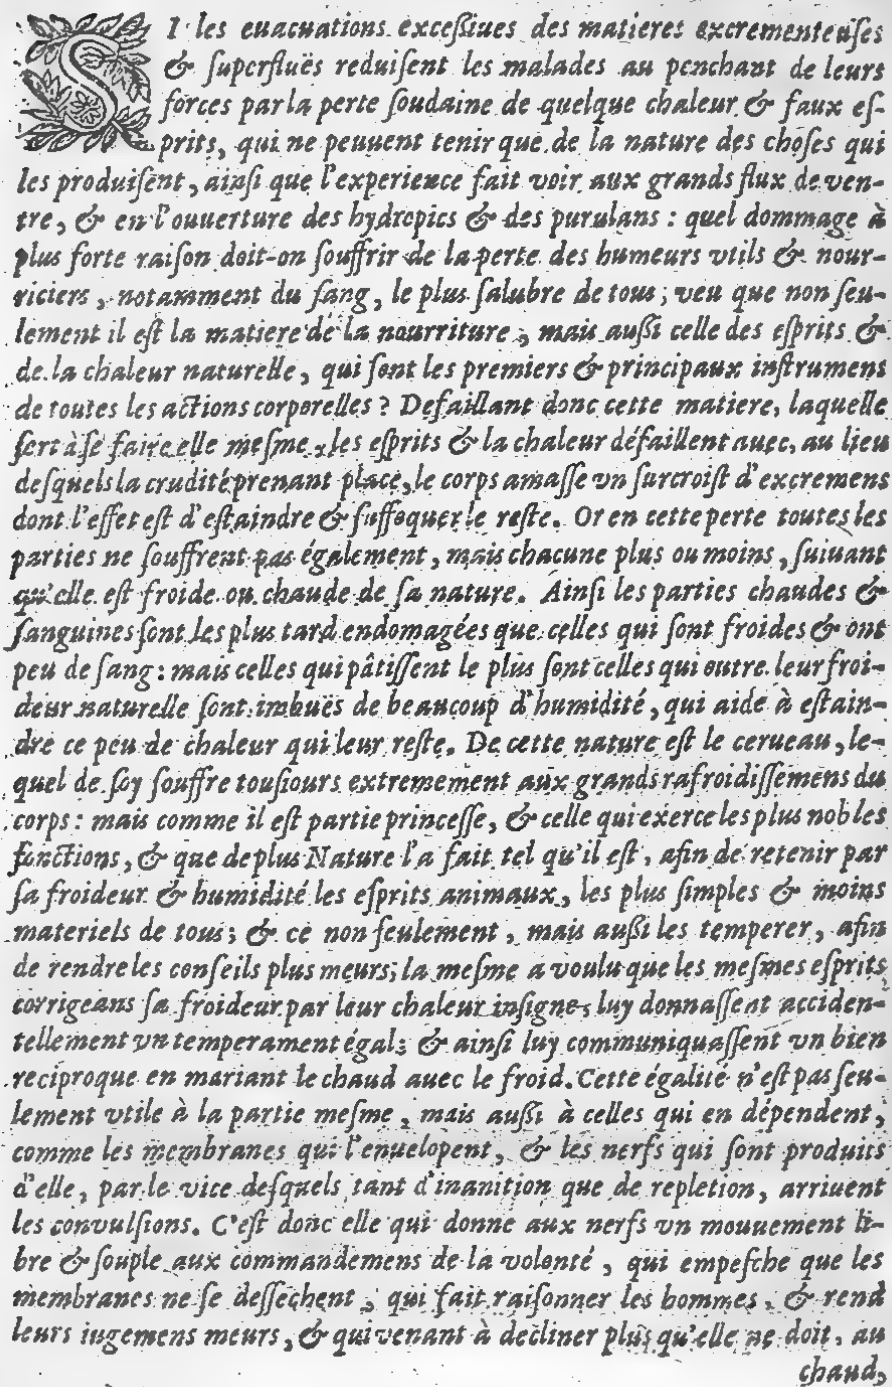 SI les euacuations exceſſiues des matieres excrementeuſes
& ſuperfluës reduiſent les malades au penchant de leurs
forces par la perte ſoudaine de quelque chaleur & faux eſ-
prits, qui ne peuuent tenir que de la nature des choſes qui
les produiſent, ainſi que l'experience fait voir aux grands flux de ven-
tre, & en l'ouuerture des hydropics & des purulans : quel dommage à
plus forte raiſon doit-on ſouffrir de la perte des humeurs vtils & nour-
riciers, notamment du ſang, le plus ſalubre de tous ; veu que non ſeu-
lement il eſt la matiere de la nourriture, mais auſſi celle des eſprits &
de la chaleur naturelle, qui ſont les premiers & principaux inſtrumens
de toutes les actions corporelles ? Defaillant donc cette matiere, laquelle
ſert à ſe faire elle meſme, les eſprits & la chaleur défaillent auec, au lieu
deſquels la crudité prenant place, le corps amaſſe vn ſurcroiſt d'excremens
dont l'effet eſt d'eſtaindre & ſuffoquer le reſte. Or en cette perte toutes les
parties ne ſouffrent pas également, mais chacune plus ou moins, ſuiuant
qu'elle eſt froide ou chaude de ſa nature. Ainſi les parties chaudes &
ſanguines ſont les plus tard endomagées que celles qui ſont froides & ont
peu de ſang : mais celles qui pâtiſſent le plus ſont celles qui outre leur froi-
deur naturelle ſont imbuës de beaucoup d'humidité, qui aide à eſtain-
dre ce peu de chaleur qui leur reſte. De cette nature eſt le cerueau, le-
quel de ſoy ſouffre touſiours extremement aux grands rafroidiſſemens du
corps : mais comme il eſt partie princeſſe, & celle qui exerce les plus nobles
fonctions, & que de plus Nature l'a fait tel qu'il eſt, afin de retenir par
ſa froideur & humidité les eſprits animaux, les plus ſimples & moins
materiels de tous ; & ce non ſeulement, mais auſſi les temperer, afin
de rendre les conſeils plus meurs ; la meſme a voulu que les meſmes eſprits
corrigeans ſa froideur par leur chaleur inſigne, luy donnaſſent acciden-
tellement vn temperament égal ; & ainſi luy communiquaſſent vn bien
reciproque en mariant le chaud auec le froid. Cette égalité n'eſt pas ſeu-
lement vtile à la partie meſme, mais auſſi à celles qui en dépendent,
comme les membranes qui l'enuelopent, & les nerfs qui ſont produits
d'elle, par le vice deſquels tant d'inanition que de repletion, arriuent
les convulſions. C'eſt donc elle qui donne aux nerfs vn mouuement li-
bre & ſouple aux commandemens de la volonté, qui empeſche que les
membranes ne ſe deſſechent, qui fait raiſonner les hommes, & rend
leurs iugemens meurs, & qui venant à decliner plus qu'elle ne doit, au
chaud,